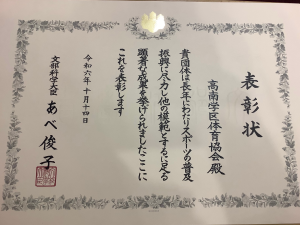 表彰状
高南学区体育協会殿
貴団体は長年にわたりスポーツの普及
振興に尽力し他の模範とするに足る
顕著な成果を挙げられましたここに
これを表彰します
令和六年十月十四日
文部科学大臣 あべ俊子